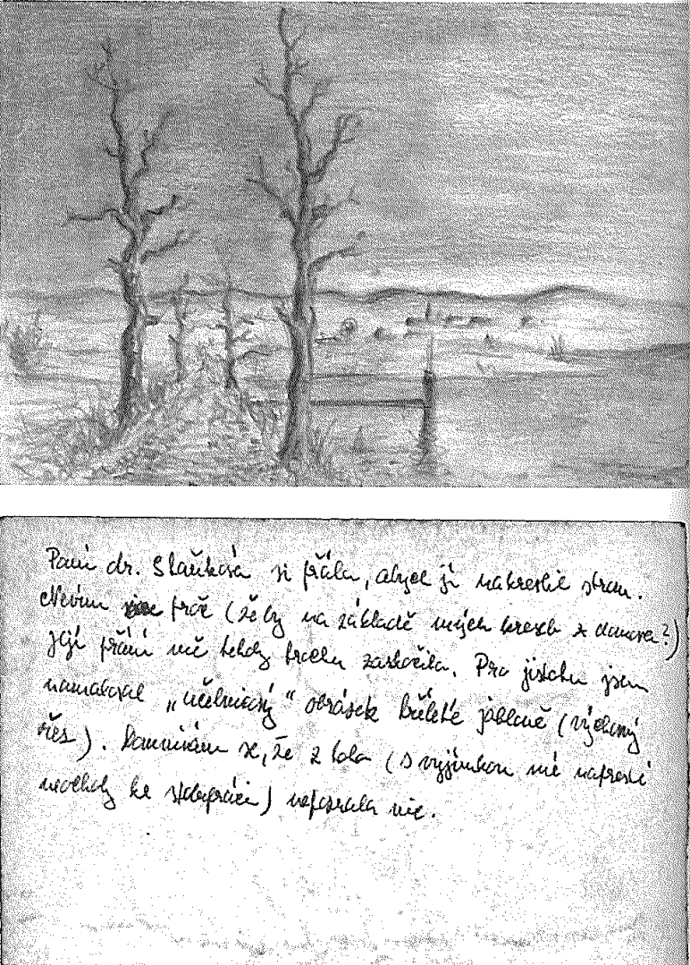 Paní dr. Slauková si přála, abych jí nakreslil strom.
Nevím proč (že by na základě mých kreseb z domova?)
Její přání mě tehdy trochu zaskočilo. Pro jistotu jsem
namaloval „učebnicový“ obrázek košaté jabloně (výchovný
řez). Domnívám se, že z toho (s výjimkou mé naprosté
neochoty ke spolupráci) nepoznala nic.